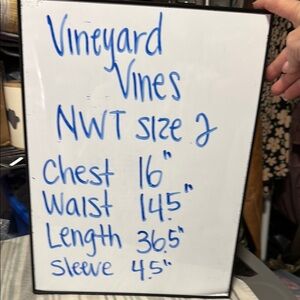 Vineyard
Vines
NWT Size 2
Chest 16"
Waist 14.5"
Length 36.5"
Sleeve 4.5"